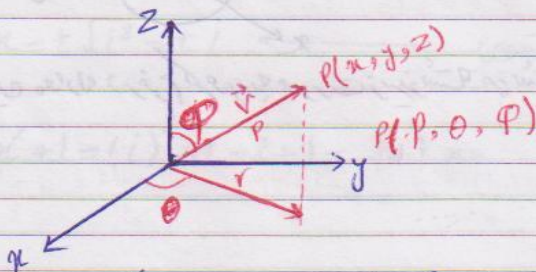 z
P(x, y, z)
φ
v⃗
ρ
P(ρ, θ, φ)
y
r
θ
x